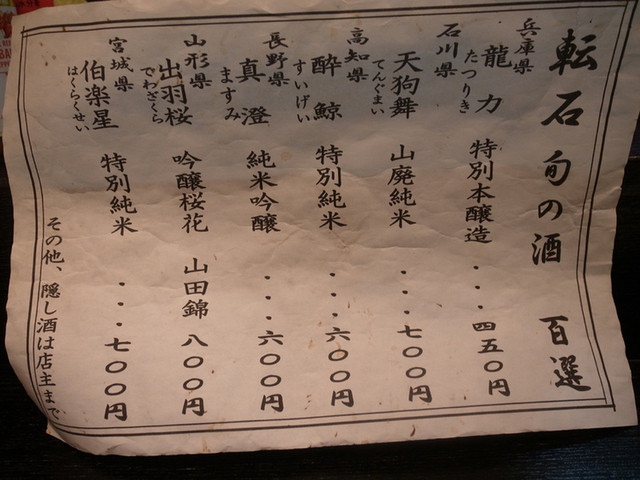 転石 旬の酒 百選
兵庫県
龍力 特別本醸造・・・四五〇円
たつりき
石川県
天狗舞 山廃純米・・・七〇〇円
てんぐまい
高知県
酔鯨 特別純米・・・六〇〇円
すいげい
長野県
真澄 純米吟醸・・・六〇〇円
ますみ
山形県
出羽桜 吟醸桜花 山田錦 八〇〇円
でわざくら
宮城県
伯楽星 特別純米・・・七〇〇円
はくらくせい
その他、隠し酒は店主まで